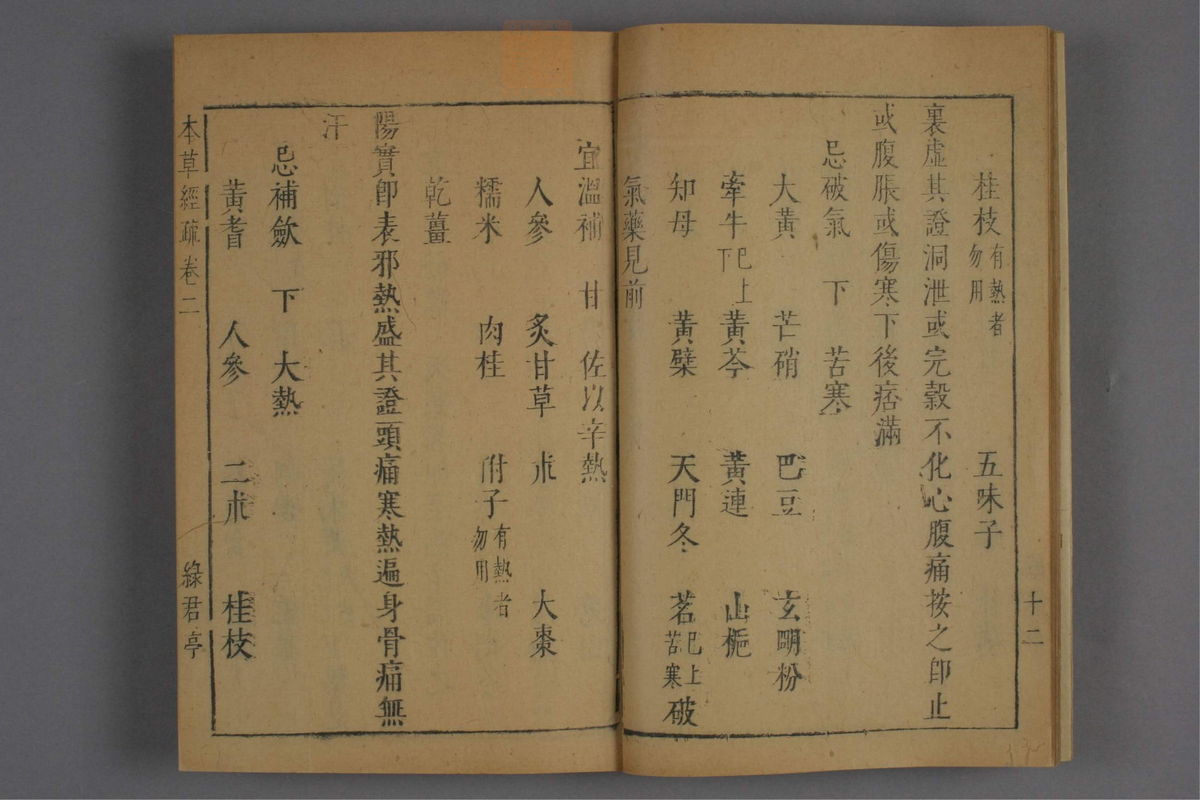 十二
桂枝有熱者勿用 五味子
裏虛其證洞泄或完穀不化心腹痛按之卽止
或腹脹或傷寒下後痞滿
忌破氣 下 苦寒
大黃 芒硝 巴豆 玄明粉
牽牛巳上下 黃芩 黃連 山梔
知母 黃檗 天門冬 茗巳上苦寒 破
氣藥見前
宜溫補 甘 佐以辛熱
人參 炙甘草 朮 大棗
糯米 肉桂 附子有熱者勿用
乾薑
陽實卽表邪熱盛其證頭痛寒熱遍身骨痛無
汗
忌補斂 下 大熱
黃耆 人參 二朮 桂枝
本草經疏 卷二 綠君亭